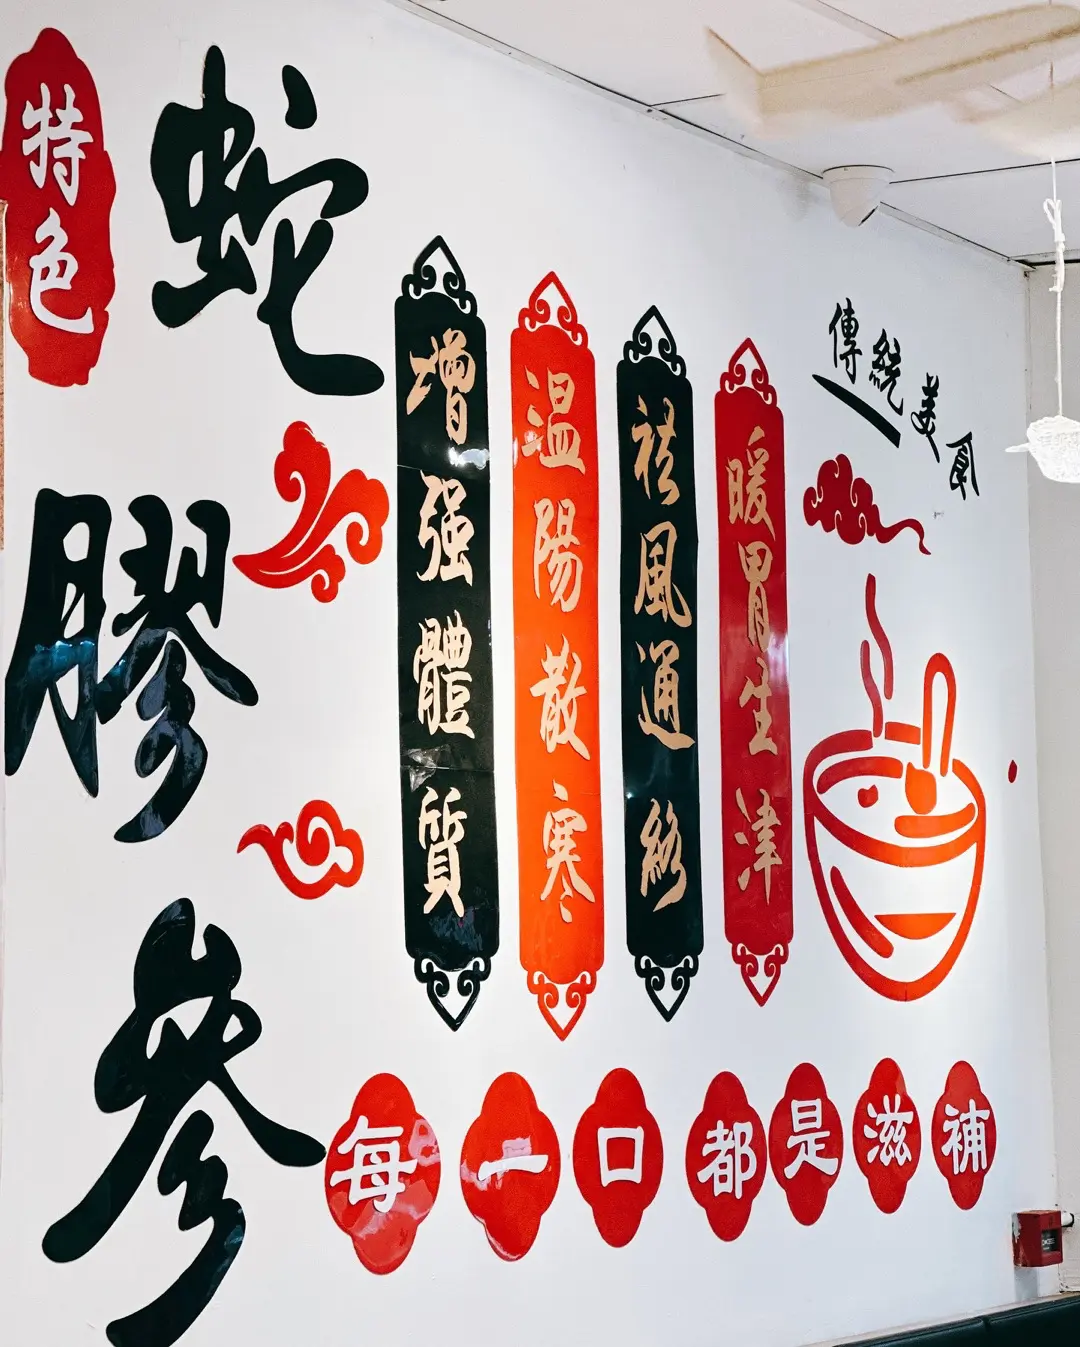 特色
蛇膠參
增强體質
温陽散寒
祛風通絡
暖胃生津
傳統美食
每一口都是滋補